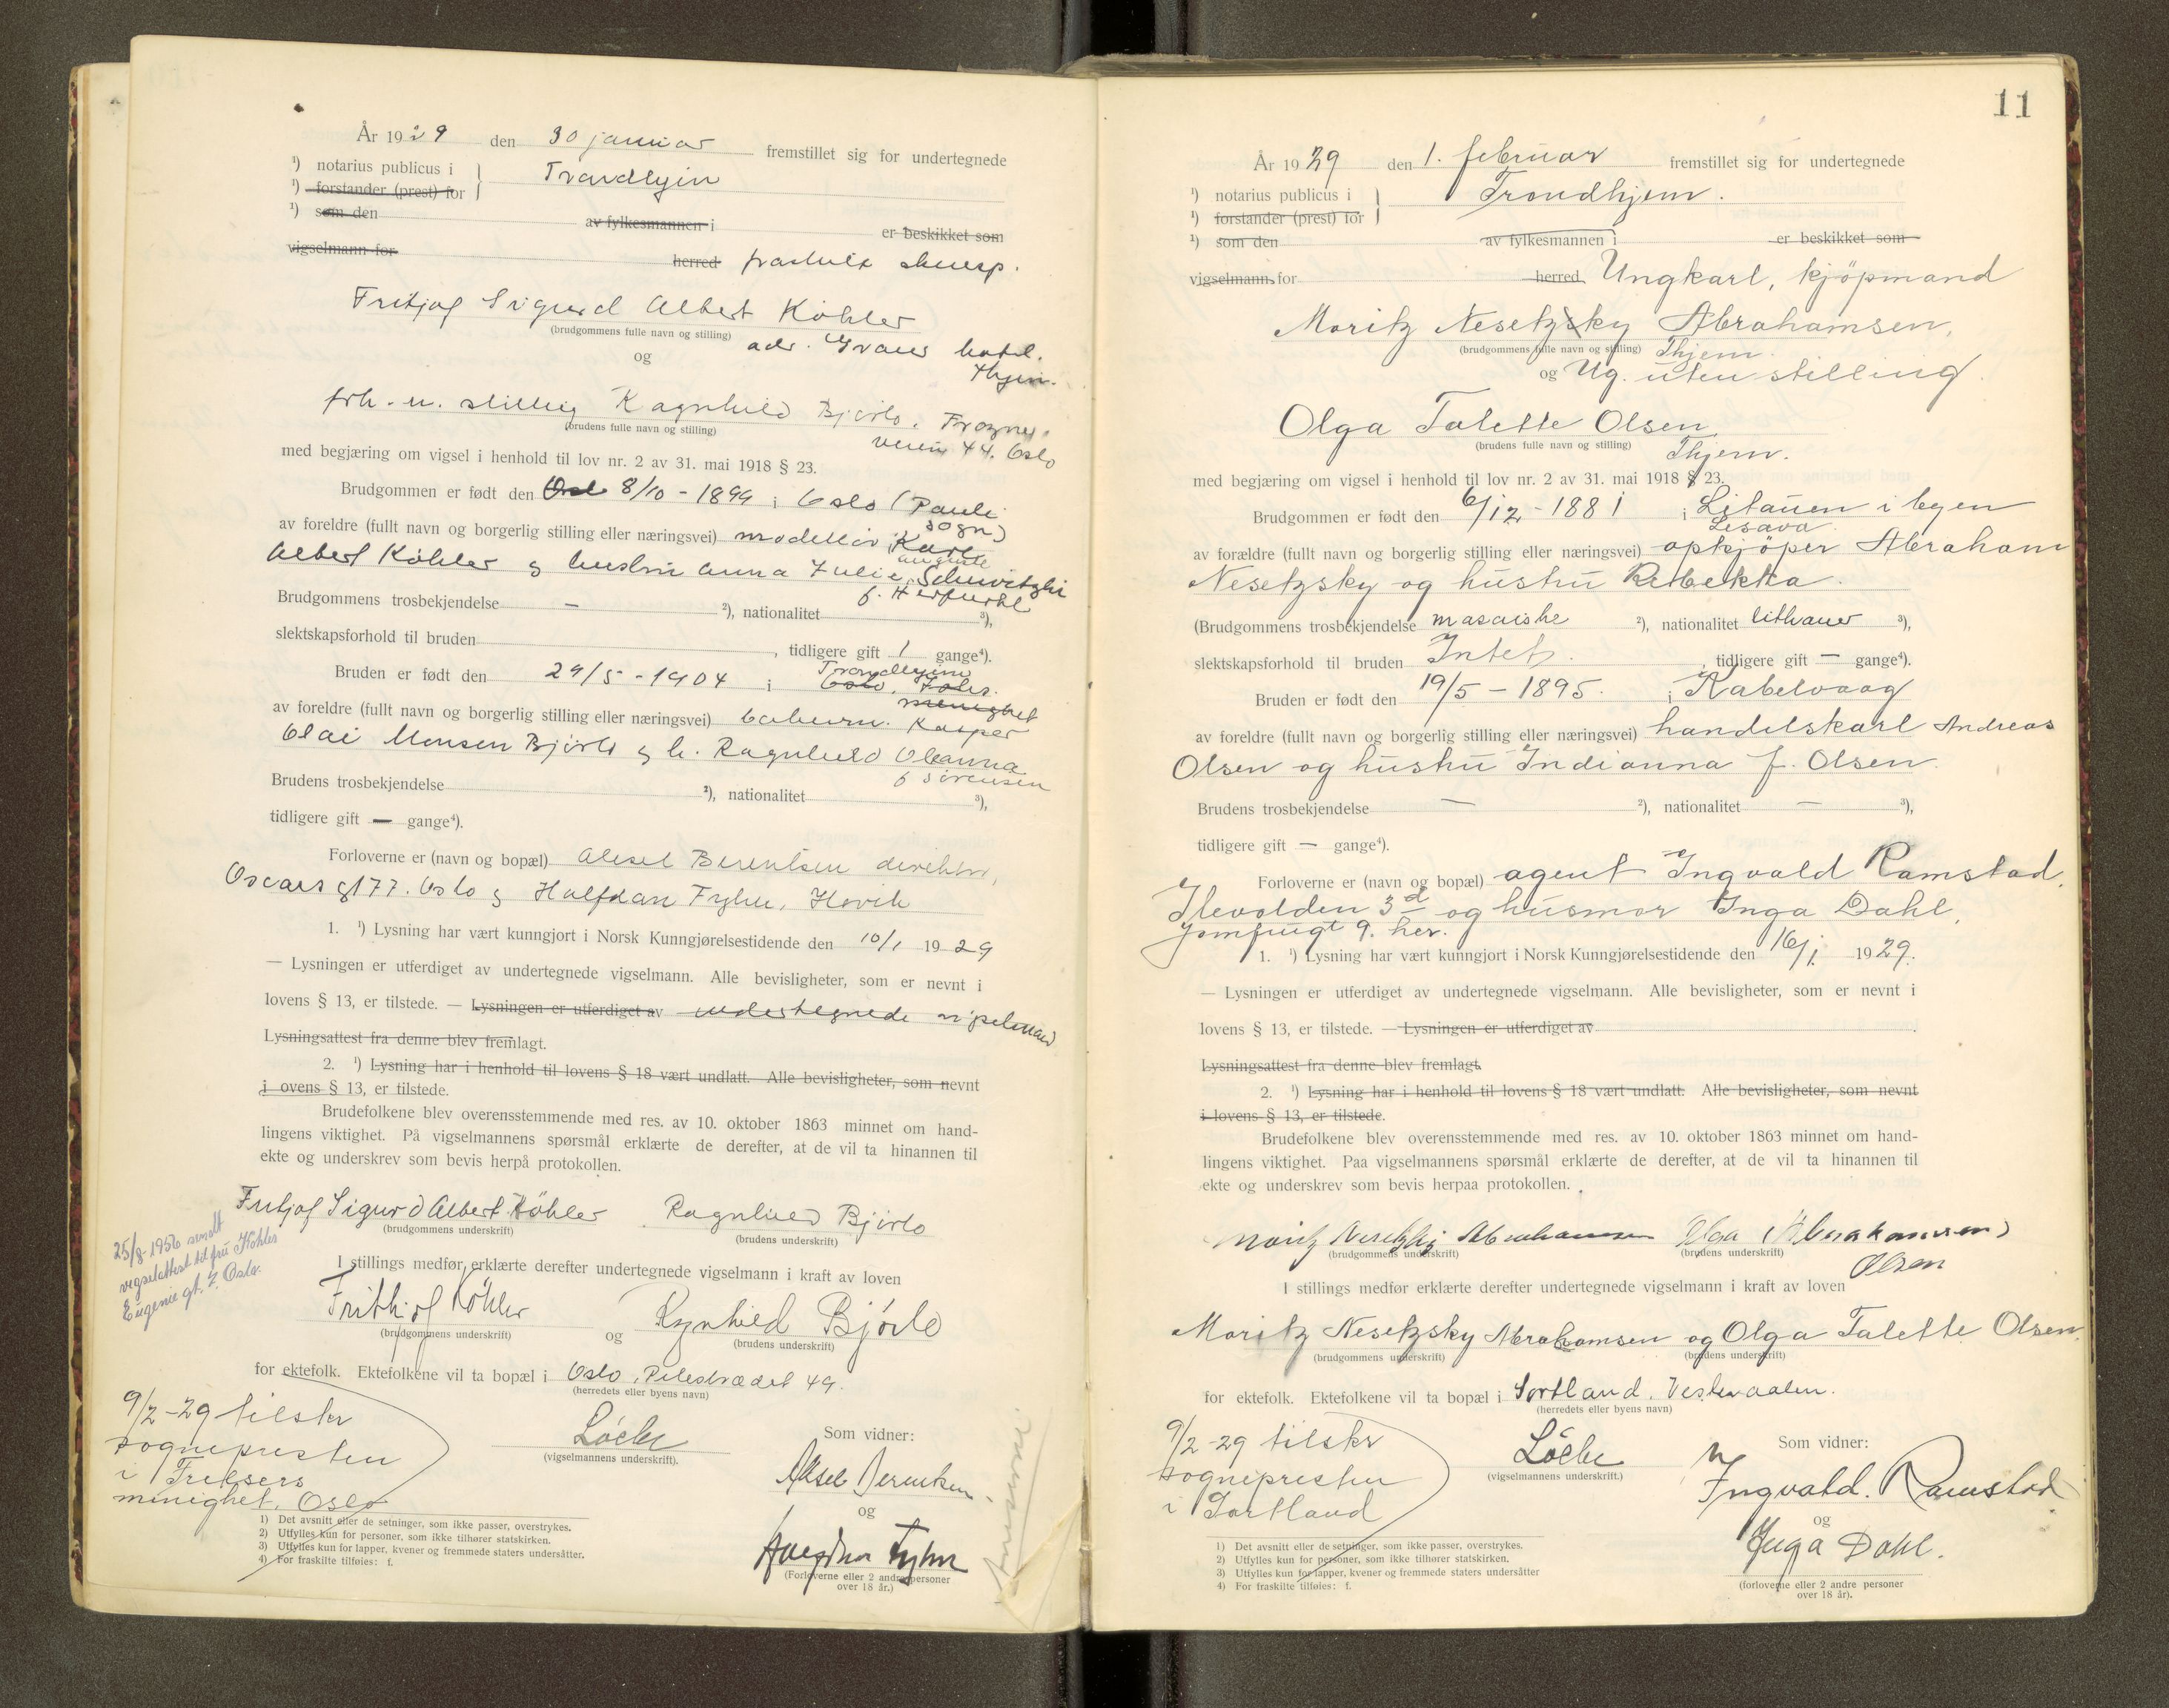 År 1929 den 30 januar fremstillet sig for undertegnede
¹) notarius publicus i } Trondhjem
¹) forstander (prest) for
¹) som den av fylkesmannen i er beskikket som
vigselmann for herred fraskilt skuesp.
Fritjof Sigurd Albert Köhler
(brudgommens fulle navn og stilling) adr. Grand hotel.
og Thjem.
frk. u. stilling Ragnhild Bjørlo, Frogner
(brudens fulle navn og stilling) veien 44. Oslo
med begjæring om vigsel i henhold til lov nr. 2 av 31. mai 1918 § 23.
Brudgommen er født den 8/10 - 1899 i Oslo (Pauli
sogn)
av foreldre (fullt navn og borgerlig stilling eller næringsvei) modellør Karl
Albert Köhler og hustru Anna Julie auguste
f. Herfurht
Brudgommens trosbekjendelse — ²), nationalitet ³),
slektskapsforhold til bruden , tidligere gift 1 gange⁴).
Trondhjem
Bruden er født den 29/5 - 1904 i Oslo,
menighet
av foreldre (fullt navn og borgerlig stilling eller næringsvei) Kasper
Olai Monsen Bjørlo og h. Ragnhild Oleanna
f. Sørensen
Brudens trosbekjendelse ²), nationalitet ³),
tidligere gift — gange⁴).
Forloverne er (navn og bopæl) Aksel Berentsen direktør,
Oscars gt 77. Oslo og Halfdan Fyhn, Høvik
1. ¹) Lysning har vært kunngjort i Norsk Kunngjørelsestidende den 10/1 1929
— Lysningen er utferdiget av undertegnede vigselmann. Alle bevisligheter, som er nevnt i
lovens § 13, er tilstede. — Lysningen er utferdiget av undertegnede vigselmand
Lysningsattest fra denne blev fremlagt.
2. ¹) Lysning har i henhold til lovens § 18 vært undlatt. Alle bevisligheter, som nevnt
i ovens § 13, er tilstede.
Brudefolkene blev overensstemmende med res. av 10. oktober 1863 minnet om hand-
lingens viktighet. På vigselmannens spørsmål erklærte de derefter, at de vil ta hinannen til
ekte og underskrev som bevis herpå protokollen.
Fritjof Sigurd Albert Köhler Ragnhild Bjørlo
(brudgommens underskrift) (brudens underskrift)
25/8-1956 sendt
vigselattest til fru Köhler
Eugenie gt. 7. Oslo.
I stillings medfør erklærte derefter undertegnede vigselmann i kraft av loven
Frithjof Köhler og Ragnhild Bjørlo
(brudgommens underskrift) (brudens underskrift)
for ektefolk. Ektefolkene vil ta bopæl i Oslo, Pilestrædet 49.
(herredets eller byens navn)
9/2-29 tilskr
sognepresten
i Frelsers
menighet, Oslo
Löchr
(vigselmannens underskrift).
Som vidner:
Aksel Berentsen
og
Halfdan Fyhn
(Forloverne eller 2 andre personer
over 18 år.)
1) Det avsnitt eller de setninger, som ikke passer, overstrykes.
2) Utfylles kun for personer, som ikke tilhører statskirken.
3) Utfylles kun for lapper, kvener og fremmede staters undersåtter.
4) For fraskilte tilføies: f.
11
År 1929 den 1. februar fremstillet sig for undertegnede
¹) notarius publicus i } Trondhjem.
¹) forstander (prest) for
¹) som den av fylkesmannen i er beskikket som
vigselmann for herred Ungkarl, kjöpmand
Moritz Nesetzsky Abrahamsen,
(brudgommens fulle navn og stilling) Thjem.
og Ug. uten stilling
Olga Talette Olsen,
(brudens fulle navn og stilling) Thjem.
med begjæring om vigsel i henhold til lov nr. 2 av 31. mai 1918 § 23.
Brudgommen er født den 6/12 - 1881 i Litauen i byen
Lesava
av forældre (fullt navn og borgerlig stilling eller næringsvei) opkjöper Abraham
Nesetzsky og hustru Rebekka.
(Brudgommens trosbekjendelse mosaiske ²), nationalitet lithauer ³),
slektskapsforhold til bruden Intet. , tidligere gift — gange⁴).
Bruden er født den 19/5 - 1895. i Kabelvaag
av foreldre (fullt navn og borgerlig stilling eller næringsvei) handelskarl Andreas
Olsen og hustru Indianna f. Olsen.
Brudens trosbekjendelse — ²), nationalitet — ³),
tidligere gift — gange⁴).
Forloverne er (navn og bopæl) agent Ingvald Ramstad,
Ilevolden 3d og husmor Inga Dahl,
Jomfrugt 9. her.
1. ¹) Lysning har vært kunngjort i Norsk Kunngjørelsestidende den 16/1 1929.
— Lysningen er utferdiget av undertegnede vigselmann. Alle bevisligheter, som er nevnt i
lovens § 13, er tilstede. — Lysningen er utferdiget av
Lysningsattest fra denne blev fremlagt.
2. ¹) Lysning har i henhold til lovens § 18 vært undlatt. Alle bevisligheter, som nevnt
i lovens § 13, er tilstede.
Brudefolkene blev overensstemmende med res. av 10. oktober 1863 minnet om hand-
lingens viktighet. Paa vigselmannens spørsmål erklærte de derefter, at de vil ta hinannen til
ekte og underskrev som bevis herpaa protokollen.
Moritz Nesetzsky Abrahamsen Olga (Abrahamsen)
(brudgommens underskrift) (brudens underskrift) Olsen
I stillings medfør erklærte derefter undertegnede vigselmann i kraft av loven
Moritz Nesetzsky Abrahamsen og Olga Talette Olsen.
(brudgommens underskrift) (brudens underskrift)
for ektefolk. Ektefolkene vil ta bopæl i Sortland, Vesteraalen.
(herredets eller byens navn)
9/2-29 tilskr
sognepresten
i Sortland
Löchr
(vigselmannens underskrift.)
Som vidner:
Ingvald. Ramstad
og
Inga Dahl.
(forloverne eller 2 andre personer
over 18 år).
1) Det avsnitt eller de setninger, som ikke passer, overstrykes.
2) Utfylles kun for personer, som ikke tilhører statskirken.
3) Utfylles kun for lapper, kvener og fremmede staters undersåtter
4) For fraskilte tilføies: f.